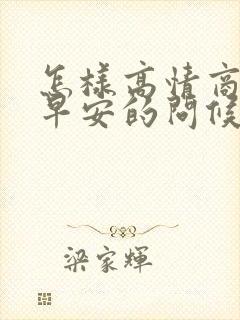 怎樣高情商
早安的問候
梁家輝